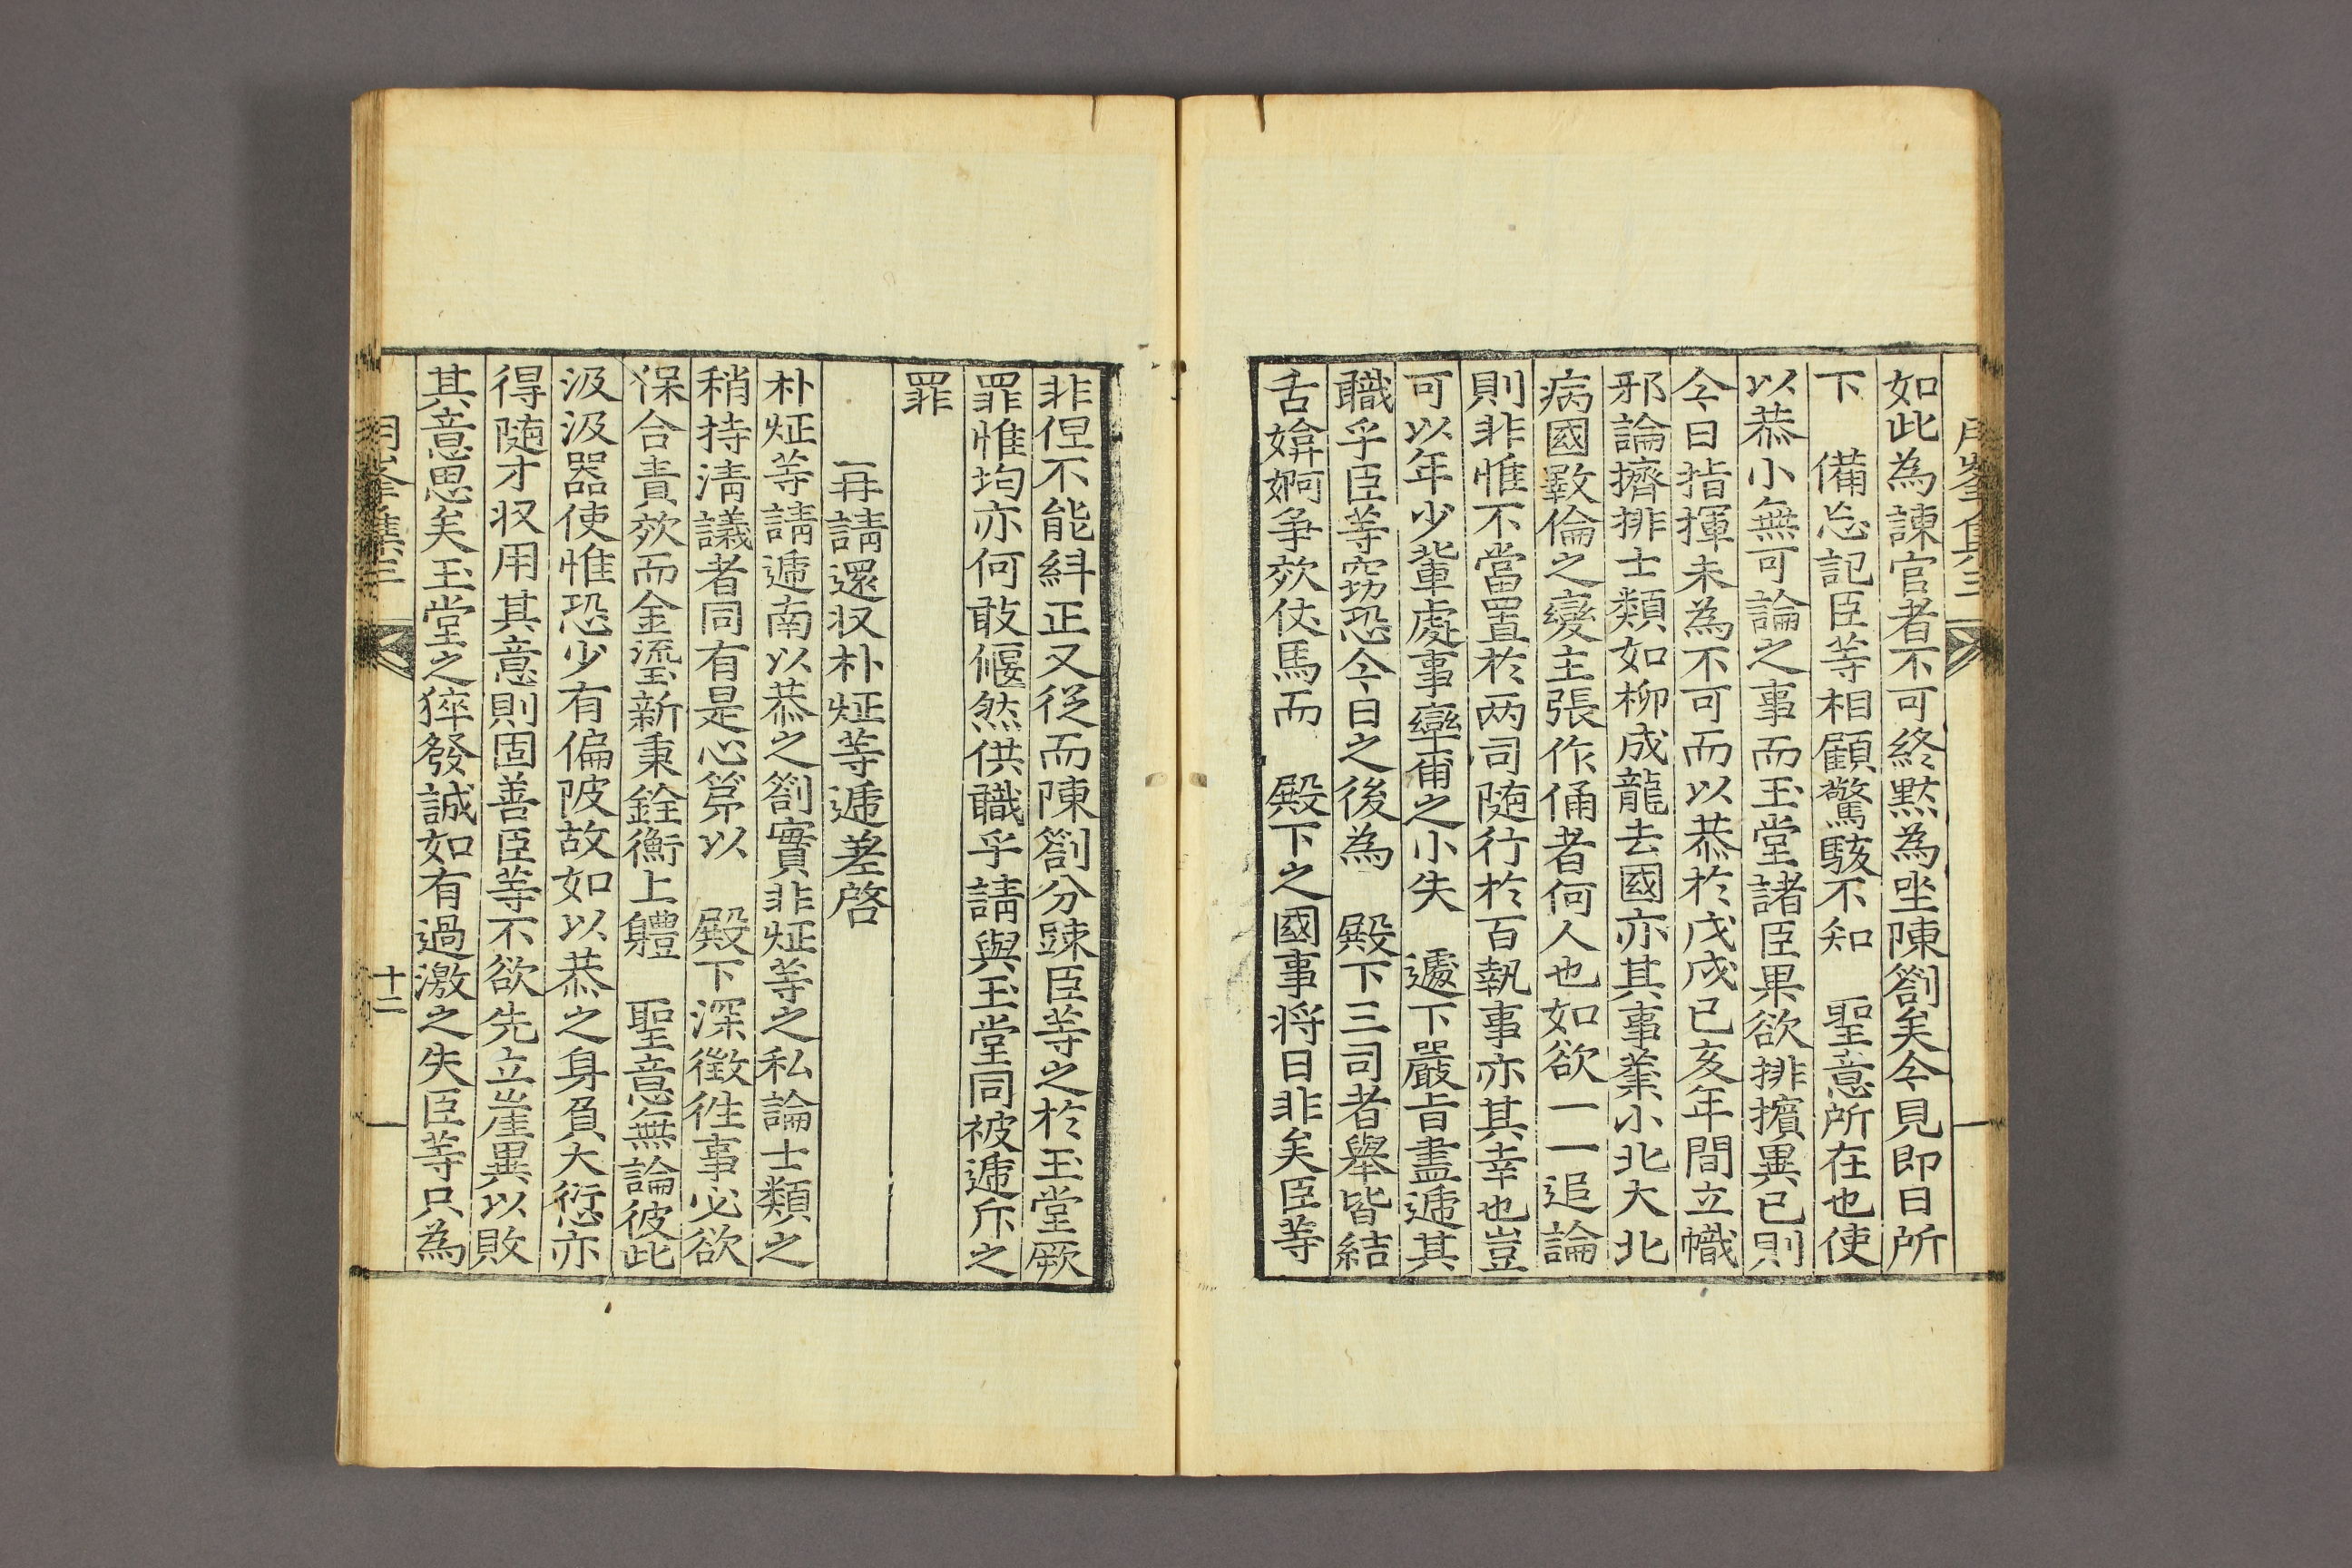 如此為諫官者不可終默為㘴陳劄矣今見即日所
下 備忘記臣等相顧驚駭不知 聖意所在也使
以恭小無可論之事而玉堂諸臣果欲排擯異己則
今日指揮未為不可而以恭於戊戌已亥年間立幟
邪論擠排士類如柳成龍去國亦其事業小北大北
病國斁倫之變主張作俑者何人也如欲一一追論
則非惟不當置於两司随行於百執事亦其幸也豈
可以年少輩處事率爾之小失 遽下嚴旨盡遞其
職乎臣等窃恐今日之後為 殿下三司者舉皆結
舌媕婀爭效仗馬而 殿下之國事将日非矣臣等
非但不能糾正又從而陳劄分踈臣等之於玉堂厥
罪惟均亦何敢偃然供職乎請與玉堂同被遞斥之
罪
再請還収朴炡等遞差啓
朴炡等請遞南以恭之劄實非炡等之私論士類之
稍持淸議者同有是心第以 殿下深徵徃事必欲
保合責效而金瑬新秉銓衡上軆 聖意無論彼此
汲汲器使惟恐少有偏陂故如以恭之身負大愆亦
得随才収用其意則固善臣等不欲先立崖異以敗
其意思矣玉堂之猝發誠如有過激之失臣等只為
十二